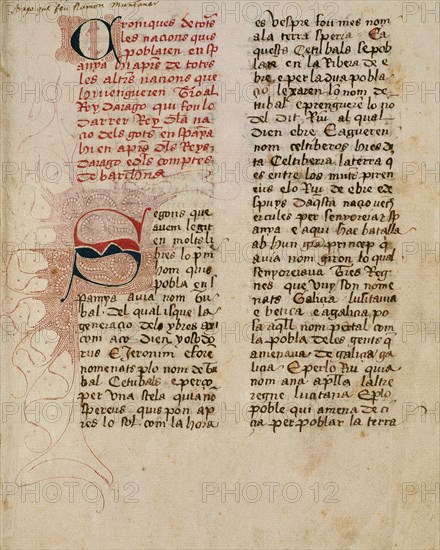 Açò que feu Ramon Muntaner
Croniques de tots
les nacions quis
poblaren en sp
anya hi apres de totes
les altres nacions que
lo vingueren Tro al
Rey darago qui fon lo
darrer Rey dla na
cio dels gots en spaya
hi en apres dls Reys
darago e dls comptes
de barcelona
Segons que
avem legit
en molts li
bres lo p̃m
hom quis
pobla en s
panya avia nom tu
bal. Del qual isque la
generacio dels ybres axi
com aco dien ysodo
rus E Jeronim e fore
nomenats p lo nom de tu
bal Cetubals e perço
per una stela qui a no
sperus quis pon ap
res lo sol. com la hora
es vespre fou mes nom
a la terra spera. E a
quests Cetubals se pob
lare en la Ribera de e
bre e per la dita pobla
ço lexaren lo nom de
tubal e prengueré lo no
del dit Riu al qual
dien ebre E agueren
nom celtiberos hi es di
ta Celtiberia la terra q
es entre los mutis piren
eus e lo Riu de ebre ed
spuys daqsta naço vech
ercules per senyoreiar sp
anya e aqui hac batalla
ab hun gra princep q
avia nom giron lo qual
senyoreiava Tres Reg
nes que vuy son nome
nats Galicia lusitavia
e betica e a galicia po
sa aqll nom portal com
la pobla de les gents q
amenava de galica/ga
licia E per lo Riu qui a
nom ana aplla laltre
regne lucitania E p lo
poble qui amena de ci
cia per poblar la terra
PHOTO 12